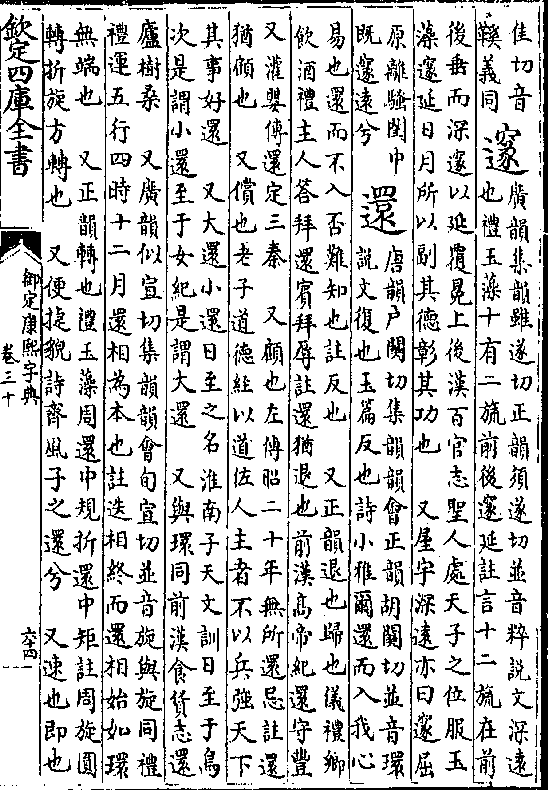 佳切音
䠂義同　邃廣韻集韻雖遂切正韻須遂切並音粹說文深遠
也禮玉藻十有二旒前後邃延註言十二旒在前
後垂而深邃以延覆冕上後漢百官志聖人處天子之位服玉
藻邃延日月所以副其德彰其功也　又屋宇深遠亦曰邃屈
原離騷閨中
既邃遠兮　還唐韻戸關切集韻韻會正韻胡關切並音環
說文復也玉篇反也詩小雅爾還而入我心
易也還而不入否難知也註反也　又正韻退也歸也儀禮鄉
飲酒禮主人答拜還賓拜辱註還猶退也前漢高帝紀還守豐
又灌嬰傳還定三秦　又顧也左傳昭二十年無所還忌註還
猶顧也　又償也老子道德經以道佐人主者不以兵強天下
其事好還　又大還小還日至之名淮南子天文訓日至于鳥
次是謂小還至于女紀是謂大還　又與環同前漢食貨志還
廬樹桑　又廣韻似宣切集韻韻會旬宣切並音旋與旋同禮
禮運五行四時十二月還相為本也註迭相終而還相始如環
無端也　又正韻轉也禮玉藻周還中規折還中矩註周旋圓
轉折旋方轉也　又便捷貌詩齊風子之還兮　又速也即也
欽定四庫全書
御定康熙字典
卷三十
六十四